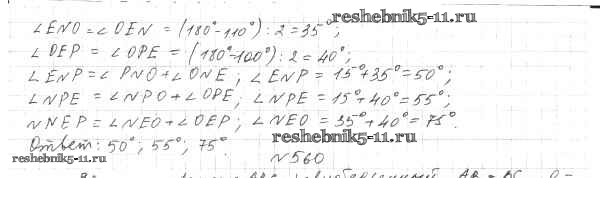 reshebnik5-11.ru
∠ENO=∠OEN = (180°-110°):2=35°;
∠OEP = ∠OPE = (180°-100°):2=40°;
∠ENP=∠PNO+∠ONE; ∠ENP = 15°+35°=50°;
∠NPE = ∠NPO+∠OPE; ∠NPE = 15°+40°=55°;
∠NEP = ∠NEO+∠OEP; ∠NEO = 35°+40°=75°.
reshebnik5-11.ru
Ответ: 50°; 55°; 75°.
reshebnik5-11.ru
N560